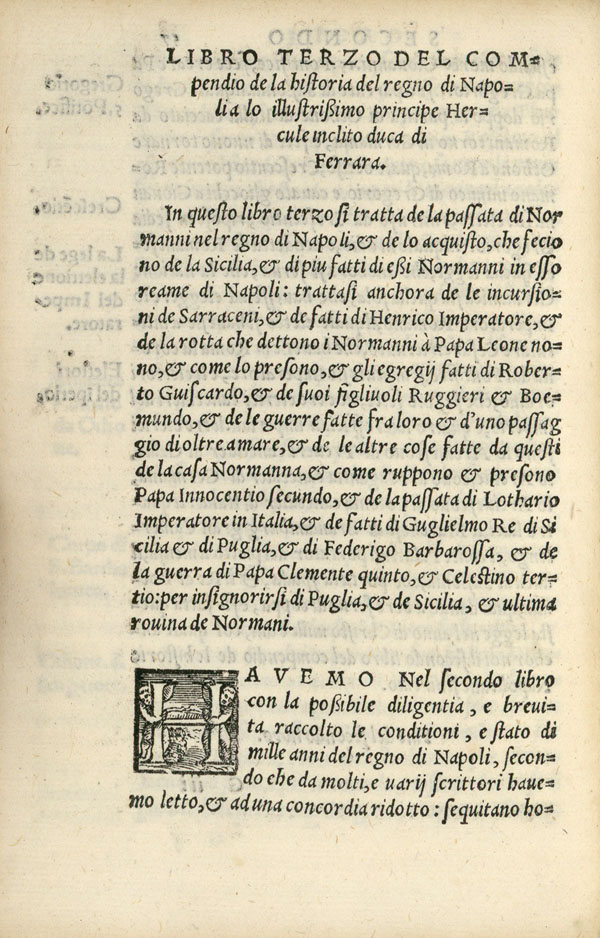 LIBRO TERZO DEL COM=
pendio de la historia del regno di Napo=
li a lo illustrißimo principe Her=
cule inclito duca di
Ferrara.
In questo libro terzo si tratta de la passata di Nor
manni nel regno di Napoli, & de lo acquisto, che fecio
no de la Sicilia, & di piu fatti di eßi Normanni in esso
reame di Napoli: trattasi anchora de le incursio=
ni de Sarraceni, & de fatti di Henrico Imperatore, &
de la rotta che dettono i Normanni à Papa Leone no=
no, & come lo presono, & gli egregij fatti di Rober=
to Guiscardo, & de suoi figliuoli Ruggieri & Boe=
mundo, & de le guerre fatte fra loro & d'uno passag
gio di oltre amare, & de le altre cose fatte da questi
de la casa Normanna, & come ruppono & presono
Papa Innocentio secundo, & de la passata di Lothario
Imperatore in Italia, & de fatti di Guglielmo Re di Si
cilia & di Puglia, & di Federigo Barbarossa, & de
la guerra di Papa Clemente quinto, & Celestino ter=
tio: per insignorirsi di Puglia, & de Sicilia, & ultima
rouina de Normani.
HAVEMO Nel secondo libro
con la poßibile diligentia, e breui=
ta raccolto le conditioni, e stato di
mille anni del regno di Napoli, secon=
do che da molti, e uarij scrittori haue=
mo letto, & ad una concordia ridotto: sequitano ho=